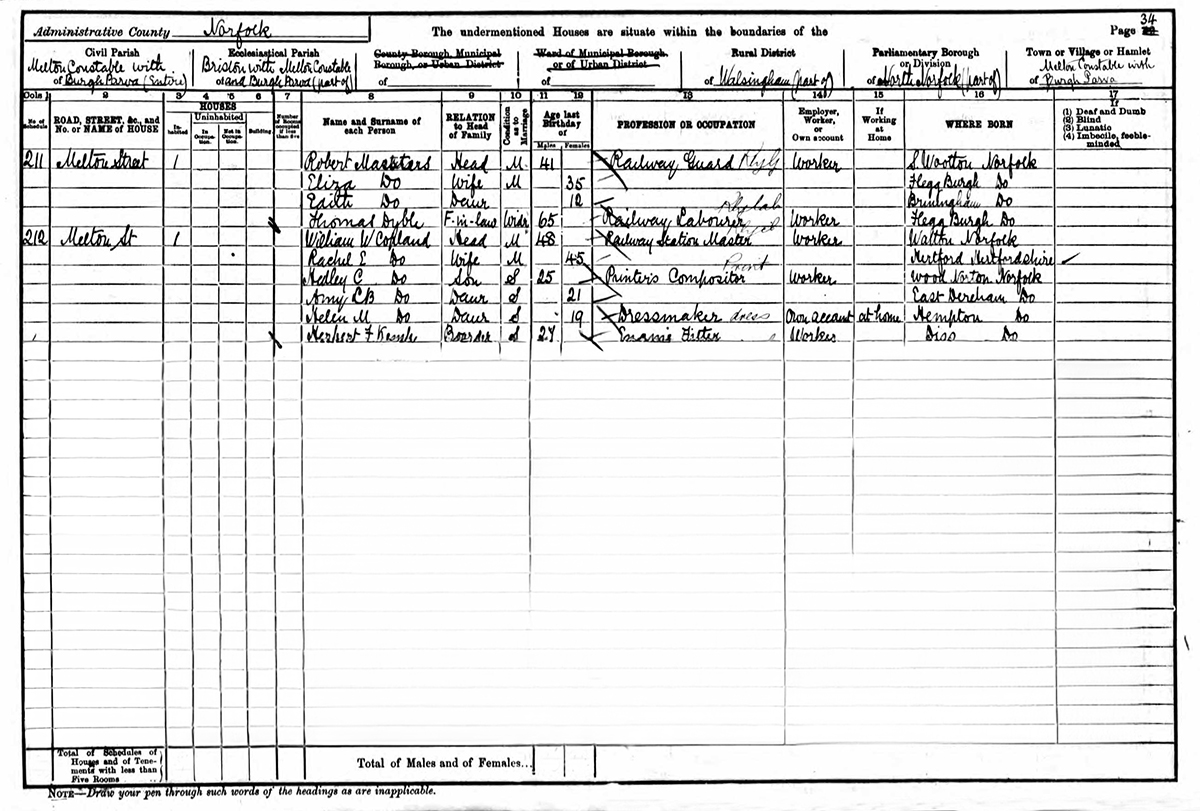 Administrative County Norfolk The undermentioned Houses are situate within the boundaries of the Page 34
Civil Parish Ecclesiastical Parish County Borough, Municipal Borough, or Urban District Ward of Municipal Borough, or of Urban District Rural District Parliamentary Borough or Division Town or Village or Hamlet
of Melton Constable with Burgh Parva (Entire) of Briston with Melton Constable and Burgh Parva (part of) of of of Walsingham (part of) of North Norfolk (part of) of Melton Constable with Burgh Parva
Cols 1 2 3 4 5 6 7 8 9 10 11 12 13 14 15 16 17
No. of Schedule ROAD, STREET, &c., and No. or NAME of HOUSE HOUSES Inhabited Uninhabited In Occupation. Not in Occupation. Building Number of Rooms occupied if less than five Name and Surname of each Person RELATION to Head of Family Condition as to Marriage Age last Birthday of Males Females PROFESSION OR OCCUPATION Employer, Worker, or Own account If Working at Home WHERE BORN If (1) Deaf and Dumb (2) Blind (3) Lunatic (4) Imbecile, feeble-minded
211 Melton Street 1 Robert Head M 41 Railway Guard Worker S. Wootton Norfolk
Eliza Do Wife M 35 Flegg Burgh Do
Edith Do Daur 12 Briningham Do
Thomas Dyble F-in-law Widr 65 Railway Labourer Worker Flegg Burgh Do
212 Melton St 1 William W Copland Head M 48 Railway Station Master Worker Watton Norfolk
Rachel E Do Wife M 45 Hertford Hertfordshire
Hedley C Do Son S 25 Printer's Compositor Print Worker Wood Norton Norfolk
Amy Do Daur S 21 East Dereham Do
Helen M Do Daur S 19 Dressmaker dress Own account at home Hempton Do
Herbert F Boarder S 27 Fitter Worker Diss Do
Total of Schedules of Houses and of Tenements with less than Five Rooms Total of Males and of Females...
NOTE—Draw your pen through such words of the headings as are inapplicable.